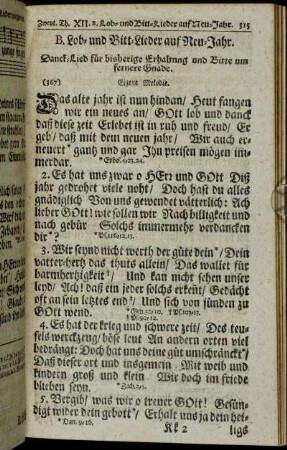 Zweyt. Th. XII. 2. Lob- und Bitt-Lieder auf Neu-Jahr. 515
B. Lob- und Bitt-Lieder auf Neu-Jahr.
Danck-Lied für bisherige Erhaltung und Bitte um
fernere Gnade.
(367) Eigene Melodie.
Das alte jahr ist nun hindan/ Heut fangen
wir ein neues an/ GOtt lob und danck
daß diese zeit Erlebet ist in ruh und freud/ Er
geb/ daß mit dem neuen jahr/ Wir auch er-
neuert* gantz und gar Ihn preisen mögen im-
merdar. * Ephes. 4/23.24.
2. Es hat uns zwar o HErr und GOtt Diß
jahr gedrohet viele noht/ Doch hast du alles
gnädiglich Von uns gewendet vätterlich: Ach
lieber GOtt! wie sollen wir Nach billigkeit und
nach gebür Solchs immermehr verdancken
dir*? * Ps. 116/12.13.
3. Wir seynd nicht werth der güte dein*/ Dein
vatter-hertz das thuts allein/ Das wallet für
barmhertzigkeit†/ Und kan nicht sehen unser
leyd/ Ach! daß ein jeder solchs erkent/ Gedächt
oft an sein letztes end‡/ Und sich von sünden zu
GOtt wend.
4. Es hat der krieg und schwere zeit/ Des teu-
fels werckzeug/ böse leut An andern orten viel
bedrängt: Doch hat uns deine güt umschränckt*/
Daß dieser ort und insgemein Mit weib und
kindern groß und klein Wir doch im friede
blieben seyn.
5. Vergib/ was wir o treuer GOtt! Gesün-
digt wider dein gebott*/ Erhalt uns ja dein hei-
* Dan. 9/16. Kk 2 ligs